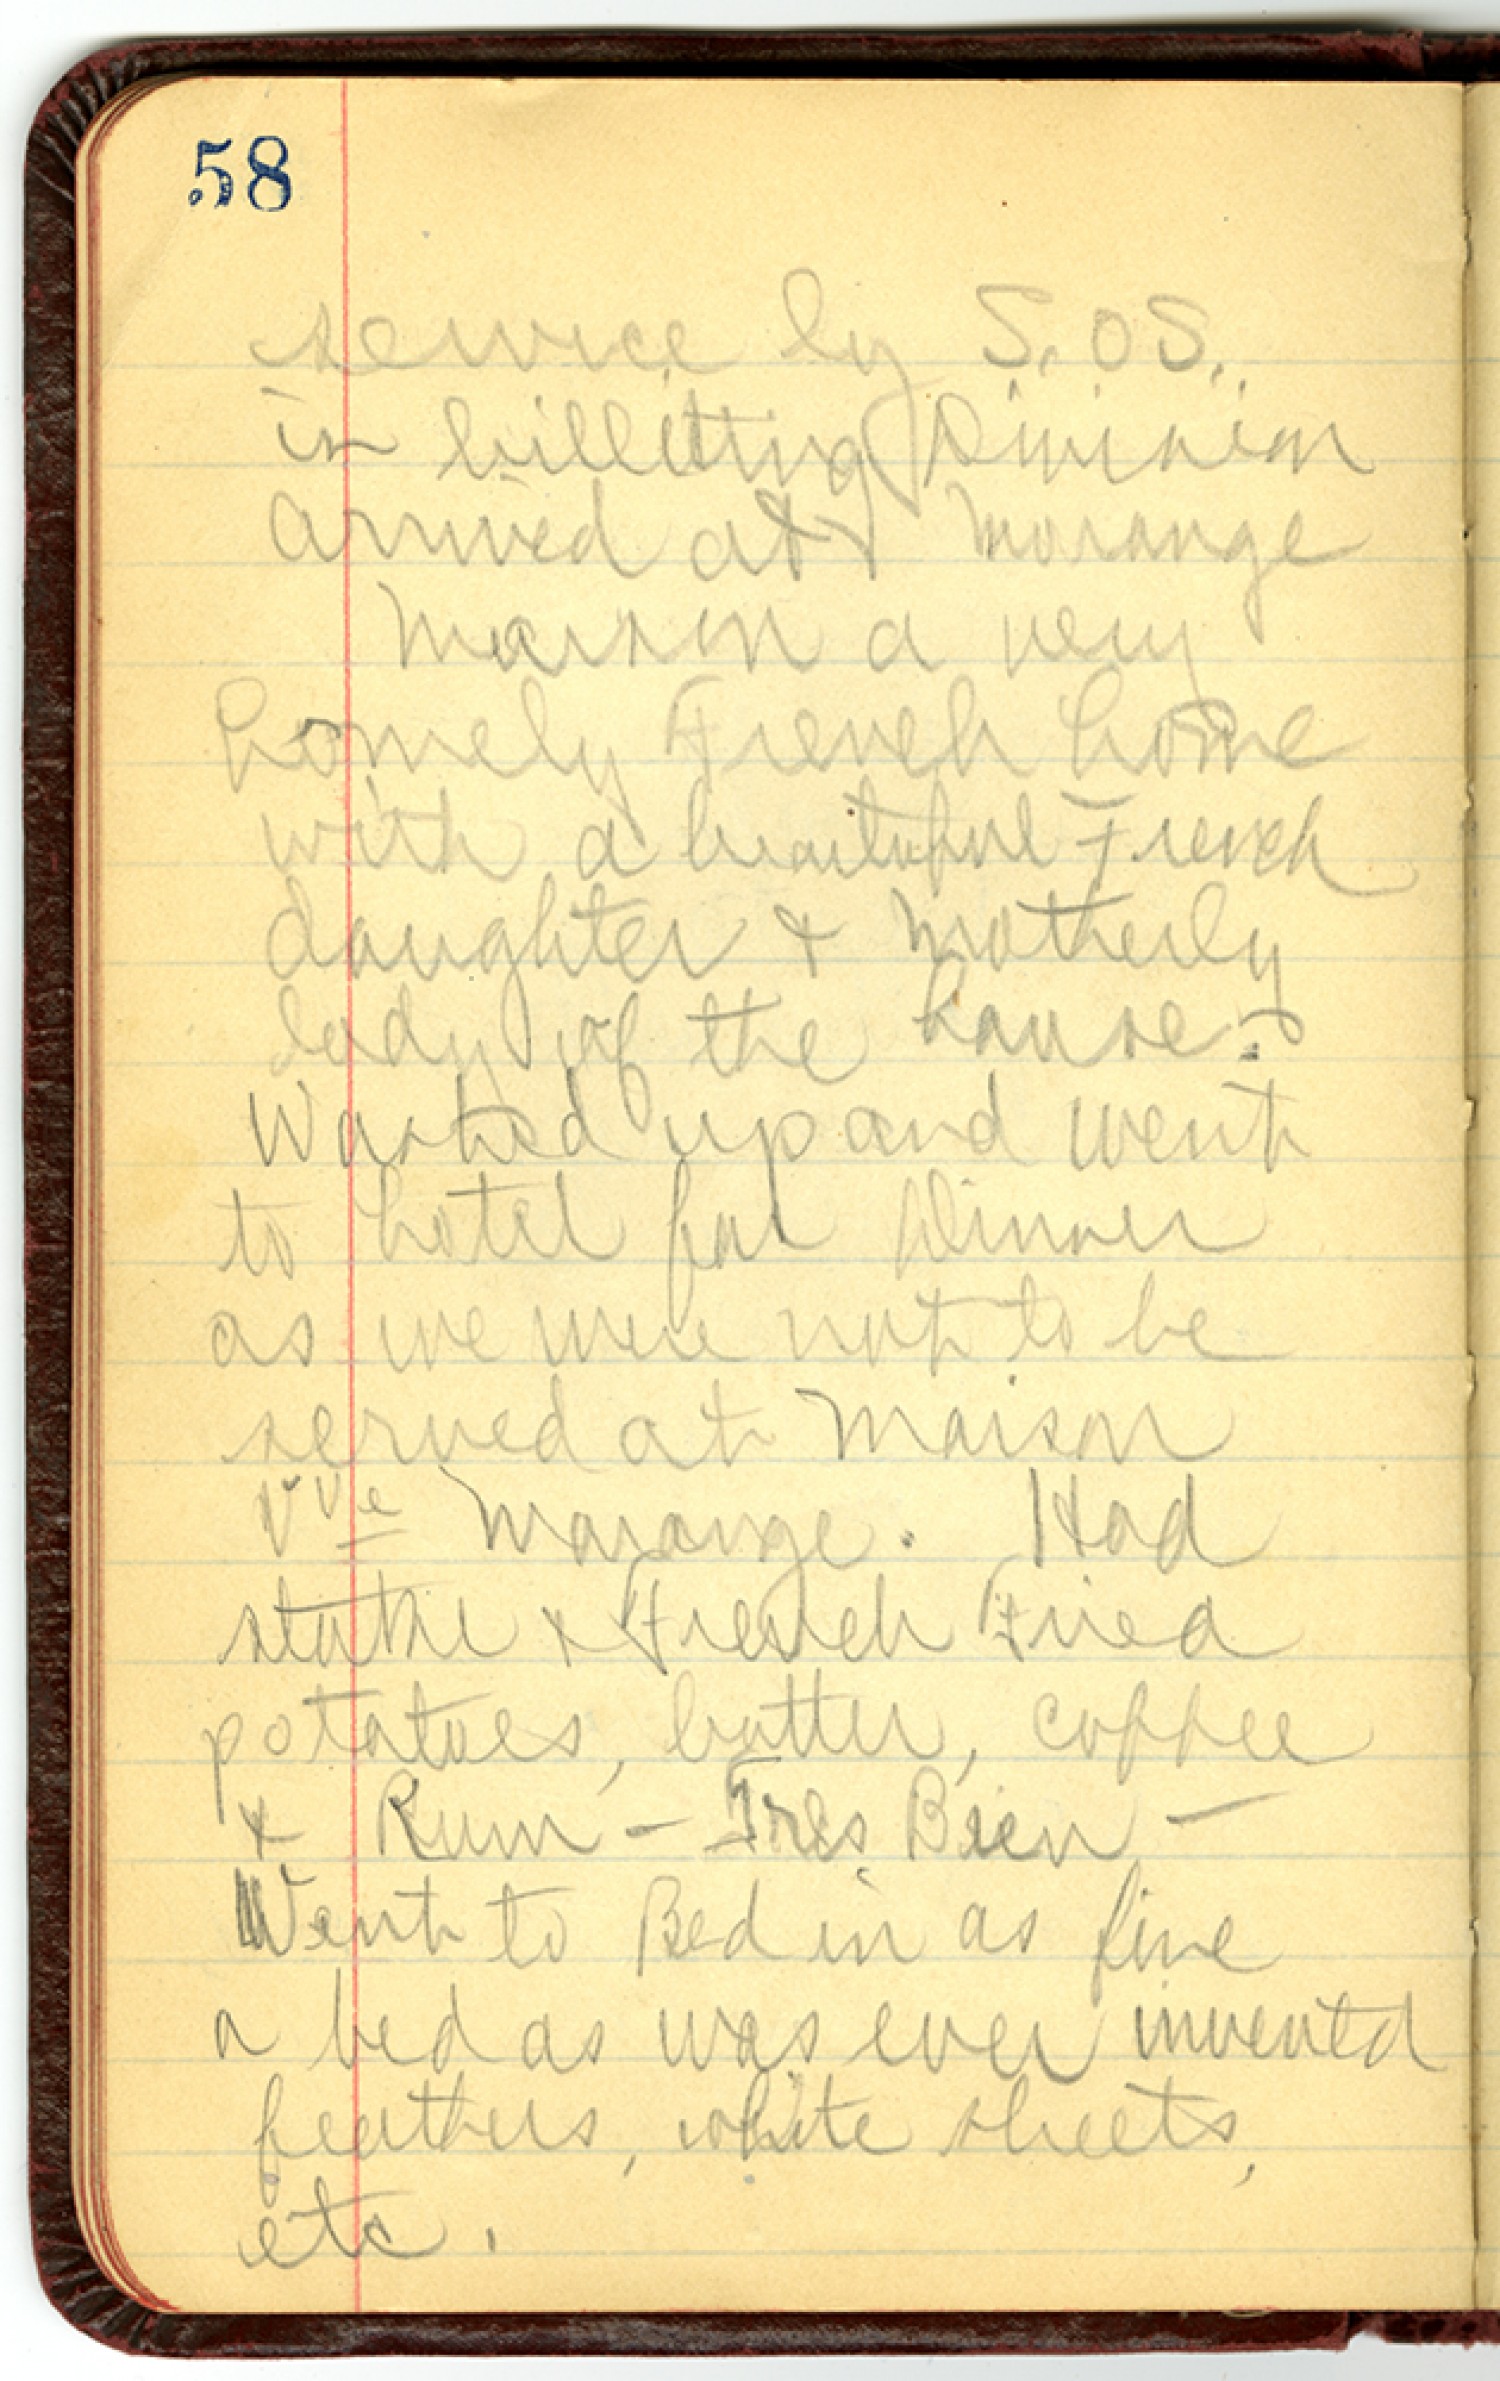 58
service by S.O.S.
in billetting Division
arrived at Morange
Maison a very
homely French home
with a beautiful French
daughter & motherly
lady of the house.
Washed up and went
to hotel for Dinner
as we were not to be
served at Maison
Vve Marange. Had
stake & French Fried
potatoes, butter, coffee
& Rum - Tres Bien -
Went to Bed in as fine
a bed as was ever inventd
feathers, white sheets,
etc.